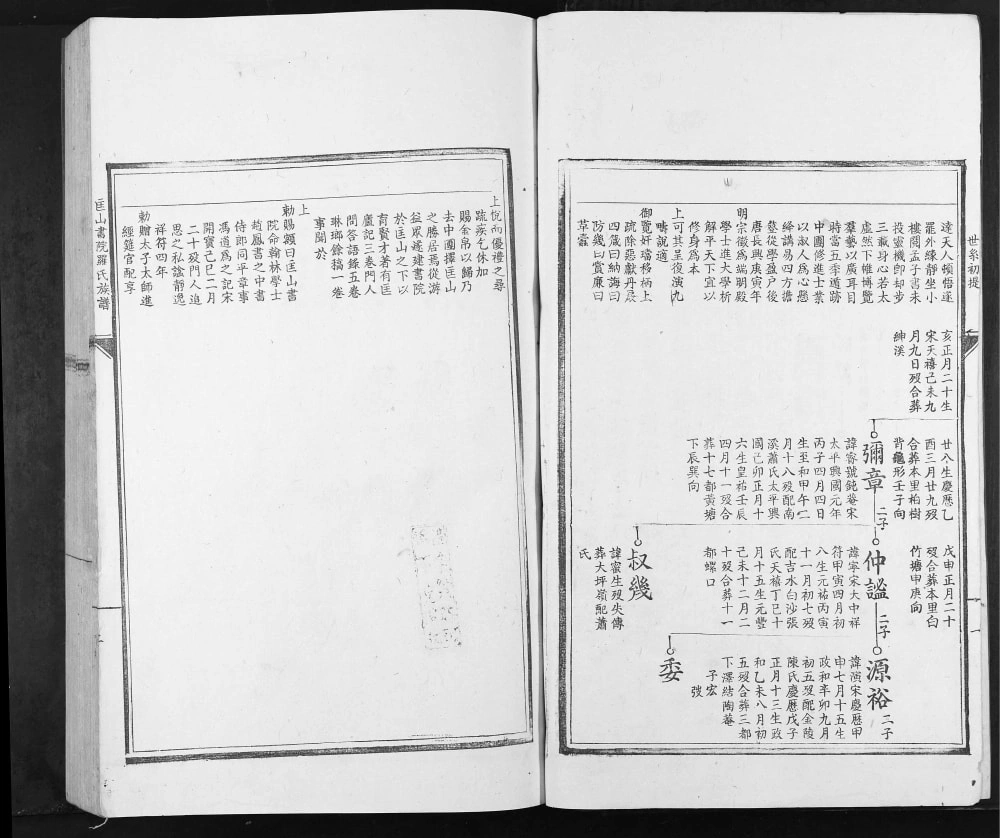 世系初提
達天人頓悟遂
罷外緣靜坐小
樓閱孟子書未
投壺機卽却步
三載身心若太
虛然下帷博覽
羣藝以廣耳目
時當五季遁跡
中圃修進士業
以淑人爲心懸
絳講易四方擔
簦從學盈户後
唐長興庚寅年
明宗徵爲端明殿
學士進大學析
解平天下宜以
修身爲本
上可其呈復演九
疇說適
御覽奸璫移柄上
疏除惡獻丹扆
四箴曰納誨曰
防幾曰賞廉曰
草蠹
亥正月二十生
宋天禧己未九
月九日歿合葬
紳溪
廿八生慶曆乙
酉三月廿九歿
合葬本里柏樹
背龜形壬子向
彌章
二子
諱睿號鈍菴宋
太平興國元年
丙子四月四日
生至和甲午二
月十八歿配南
溪蕭氏太平興
國己卯正月十
六生皇祐壬辰
四月十一歿合
葬十七都黃塘
下辰巽向
戊申正月二十
歿合葬本里白
竹塘甲庚向
仲謐
二子
諱寜宋大中祥
符甲寅四月初
八生元祐丙寅
十一月初七歿
配吉水白沙張
氏天禧丁巳十
月十五生元豐
己未十二月二
十歿合葬十一
都螺口
叔幾
諱蜜生歿失傳
葬大坪嶺配蕭
氏
源裕
二子
諱演宋慶曆甲
申七月十五生
政和辛卯九月
初五歿配金陵
陳氏慶曆戊子
正月十三生政
和乙未八月初
五歿合葬三都
下澤結陶菴
子宏
弢
委
上悅而優禮之尋
疏疾乞休加
賜金帛以歸乃
去中圃擇匡山
之勝居焉從游
益眾遂建書院
於匡山之下以
育賢才著有匡
廬記三卷門人
問答語錄五卷
琳瑯餘稿一卷
事聞於
上
勅賜額曰匡山書
院命翰林學士
趙鳳書之中書
侍郎同平章事
馮道爲之記宋
開寶己巳二月
二十歿門人追
思之私諡靜逸
祥符四年
勅贈太子太師進
經筵官配享
匡山書院羅氏族譜